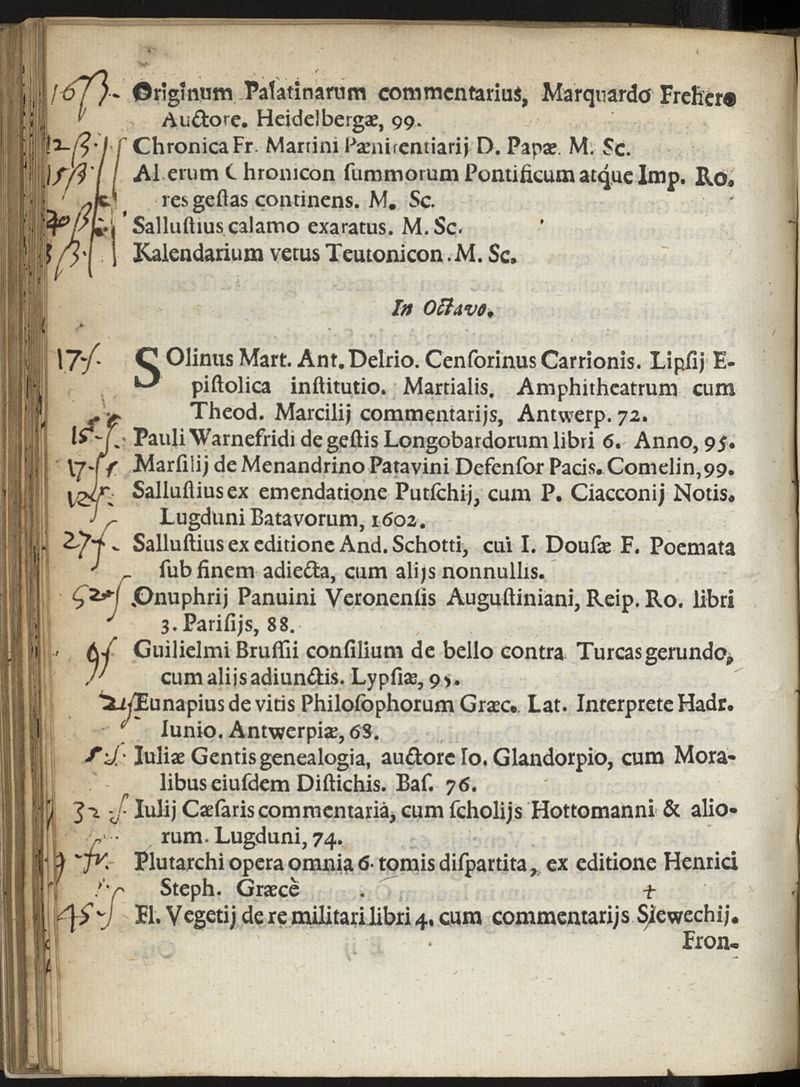 Originum Palatinarum commentarius, Marquardo Frehero
Auctore. Heidelbergæ, 99.
Chronica Fr. Martini Pænitentiarij D. Papæ. M. Sc.
Al erum Chronicon ſummorum Pontificum atque Imp. Ro.
res geſtas continens. M. Sc.
Salluſtius calamo exaratus. M. Sc.
Kalendarium vetus Teutonicon. M. Sc.
In Octavo.
17-ſ. SOlinus Mart. Ant. Delrio. Cenſorinus Carrionis. Lipſij E-
piſtolica inſtitutio. Martialis. Amphitheatrum cum
Theod. Marcilij commentarijs, Antwerp. 72.
15-ſ. Pauli Warnefridi de geſtis Longobardorum libri 6. Anno, 95.
17-ſ Marſilij de Menandrino Patavini Defenſor Pacis. Comelin, 99.
12ſ. Salluſtius ex emendatione Putſchij, cum P. Ciacconij Notis.
Lugduni Batavorum, 1602.
27ſ. Salluſtius ex editione And. Schotti, cui I. Douſæ F. Poemata
ſub finem adiecta, cum alijs nonnullis.
52-ſ Onuphrij Panuini Veronenſis Auguſtiniani, Reip. Ro. libri
3. Pariſijs, 88.
9ſ Guilielmi Bruſſii conſilium de bello contra Turcas gerundo,
cum alijs adiunctis. Lypſiæ, 95.
21ſ Eunapius de vitis Philoſophorum Græc. Lat. Interprete Hadr.
Iunio. Antwerpiæ, 68.
Iuliæ Gentis genealogia, auctore Io. Glandorpio, cum Mora-
libus eiuſdem Diſtichis. Baſ. 76.
32 ſ. Iulij Cæſaris commentaria, cum ſcholijs Hottomanni & alio-
rum. Lugduni, 74.
Plutarchi opera omnia 6. tomis diſpartita, ex editione Henrici
Steph. Græcè
45-ſ Fl. Vegetij de re militari libri 4. cum commentarijs Siewechij.
Fron-